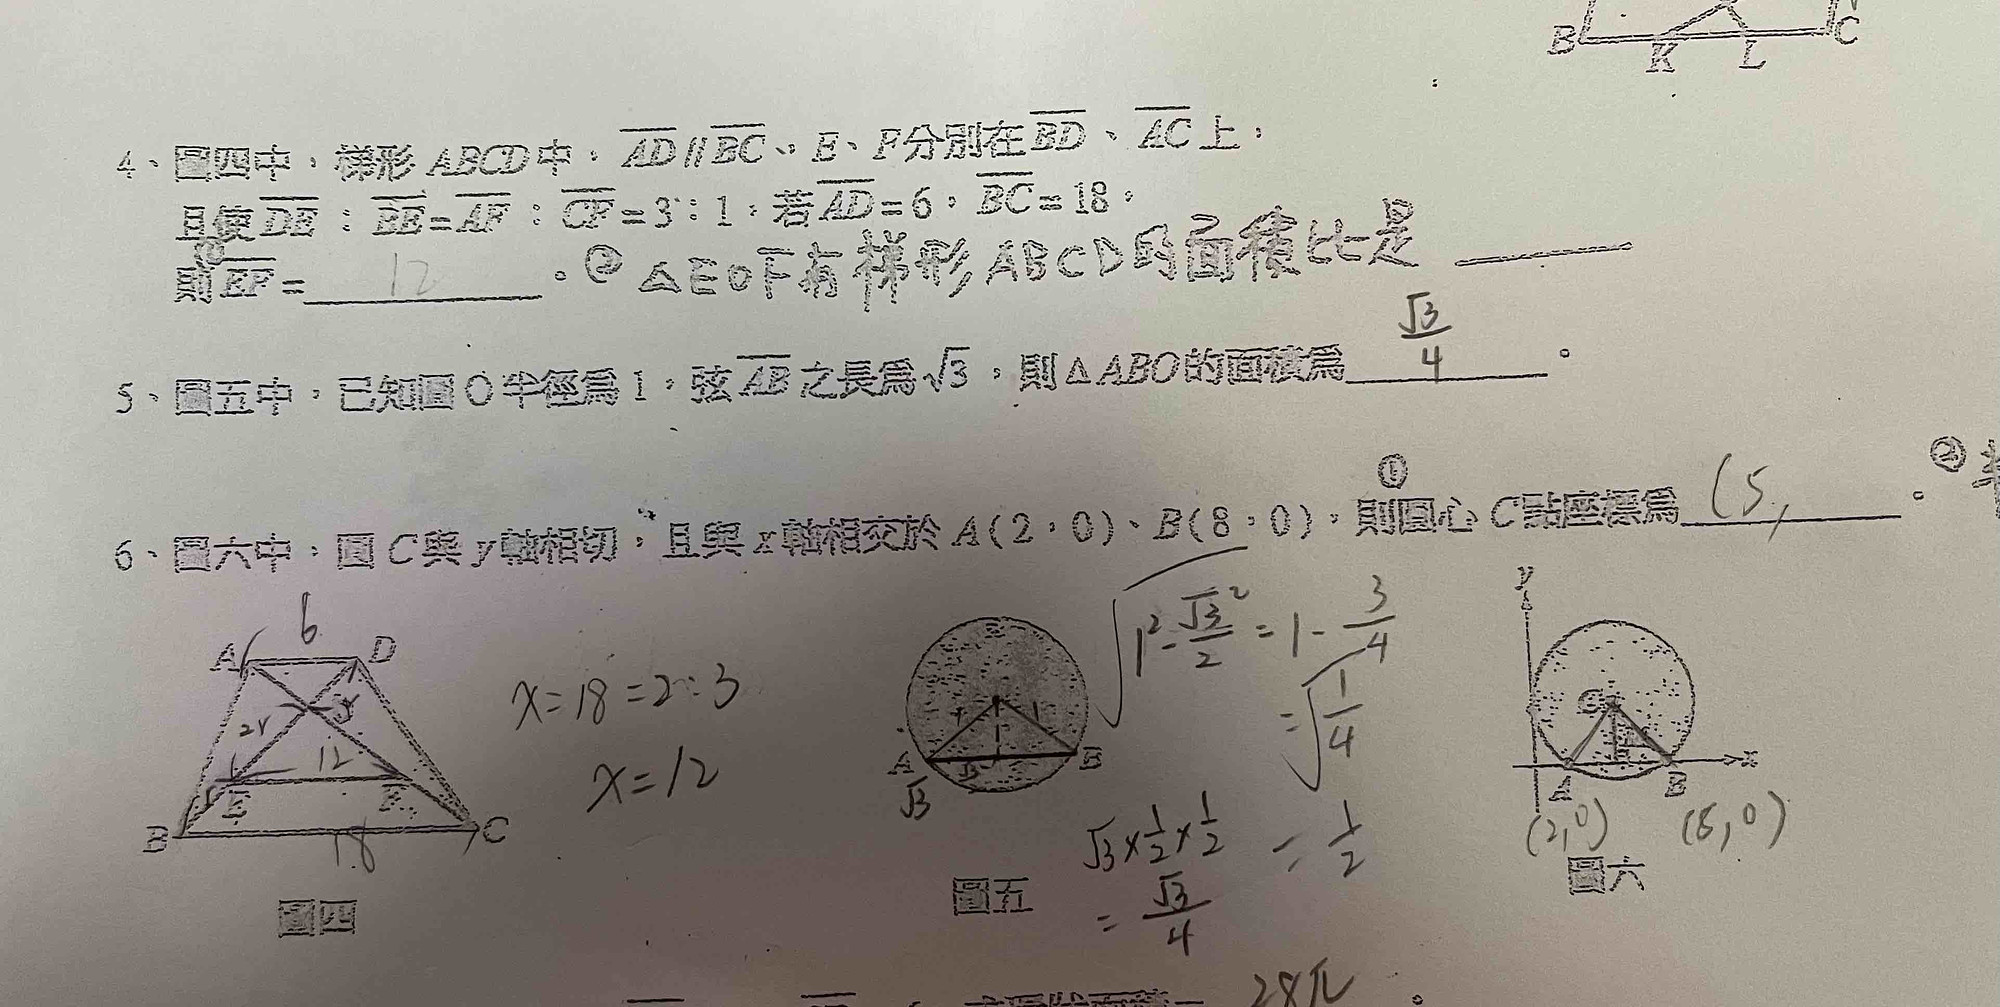 B K L C
4、圖四中，梯形 ABCD 中，AD // BC、E、F 分別在 BD、AC 上，
且使 DE：BE = AF：CF = 3：1，若 AD = 6，BC = 18，
① 則 EF = 12 。② △EOF 有梯形 ABCD 的面積比是
5、圖五中，已知圓 O 半徑為 1，弦 AB 之長為 √3，則 △ABO 的面積為 √3/4 。
6、圖六中，圓 C 與 y 軸相切，且與 x 軸相交於 A(2，0)、B(8，0)，① 則圓心 C 點座標為 (5, 。②
6
A D
2r
12
E F
B 18 C
圖四
x=18=2:3
x=12
1
A B
√3
圖五
√(1²-√3/2²) = 1 - 3/4
= √(1/4)
= 1/2
√3×1/2×1/2
= √3/4
y
C
x
A B
(2,0) (8,0)
圖六
28π 。